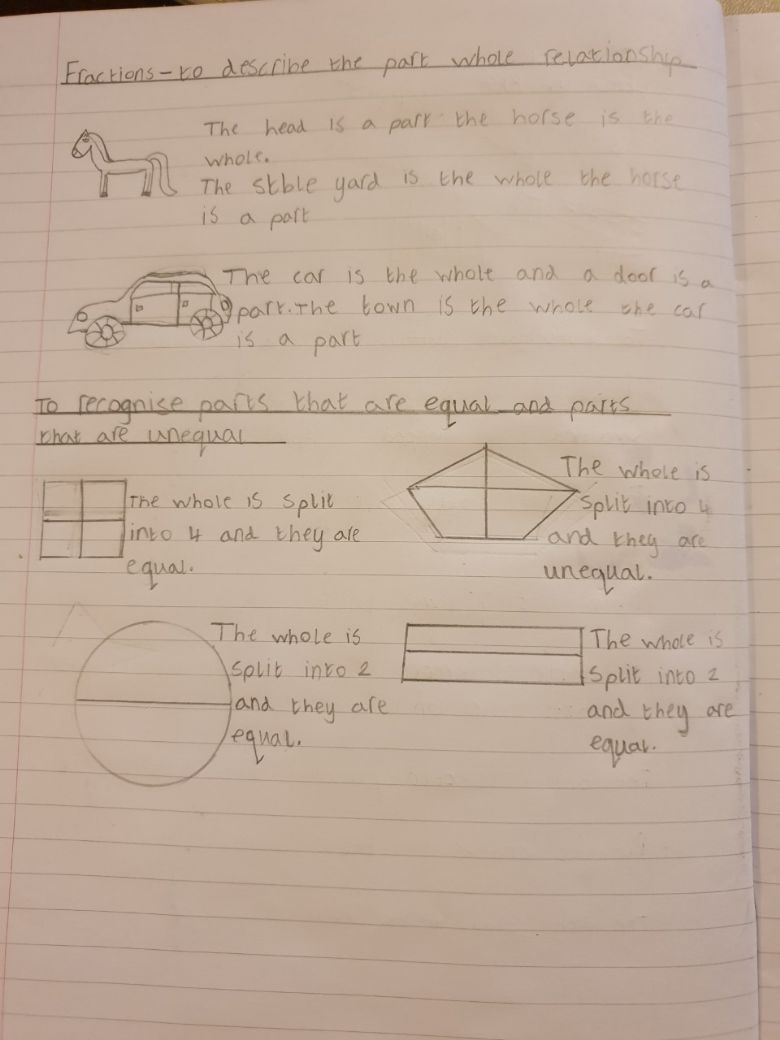 Fractions - to describe the part whole relationship
The head is a part the horse is the
whole.
The stble yard is the whole the horse
is a part
The car is the whole and a door is a
part. The town is the whole the car
is a part
To recognise parts that are equal and parts
that are unequal
The whole is split
into 4 and they are
equal.
The whole is
split into 4
and they are
unequal.
The whole is
split into 2
and they are
equal.
The whole is
split into 2
and they are
equal.